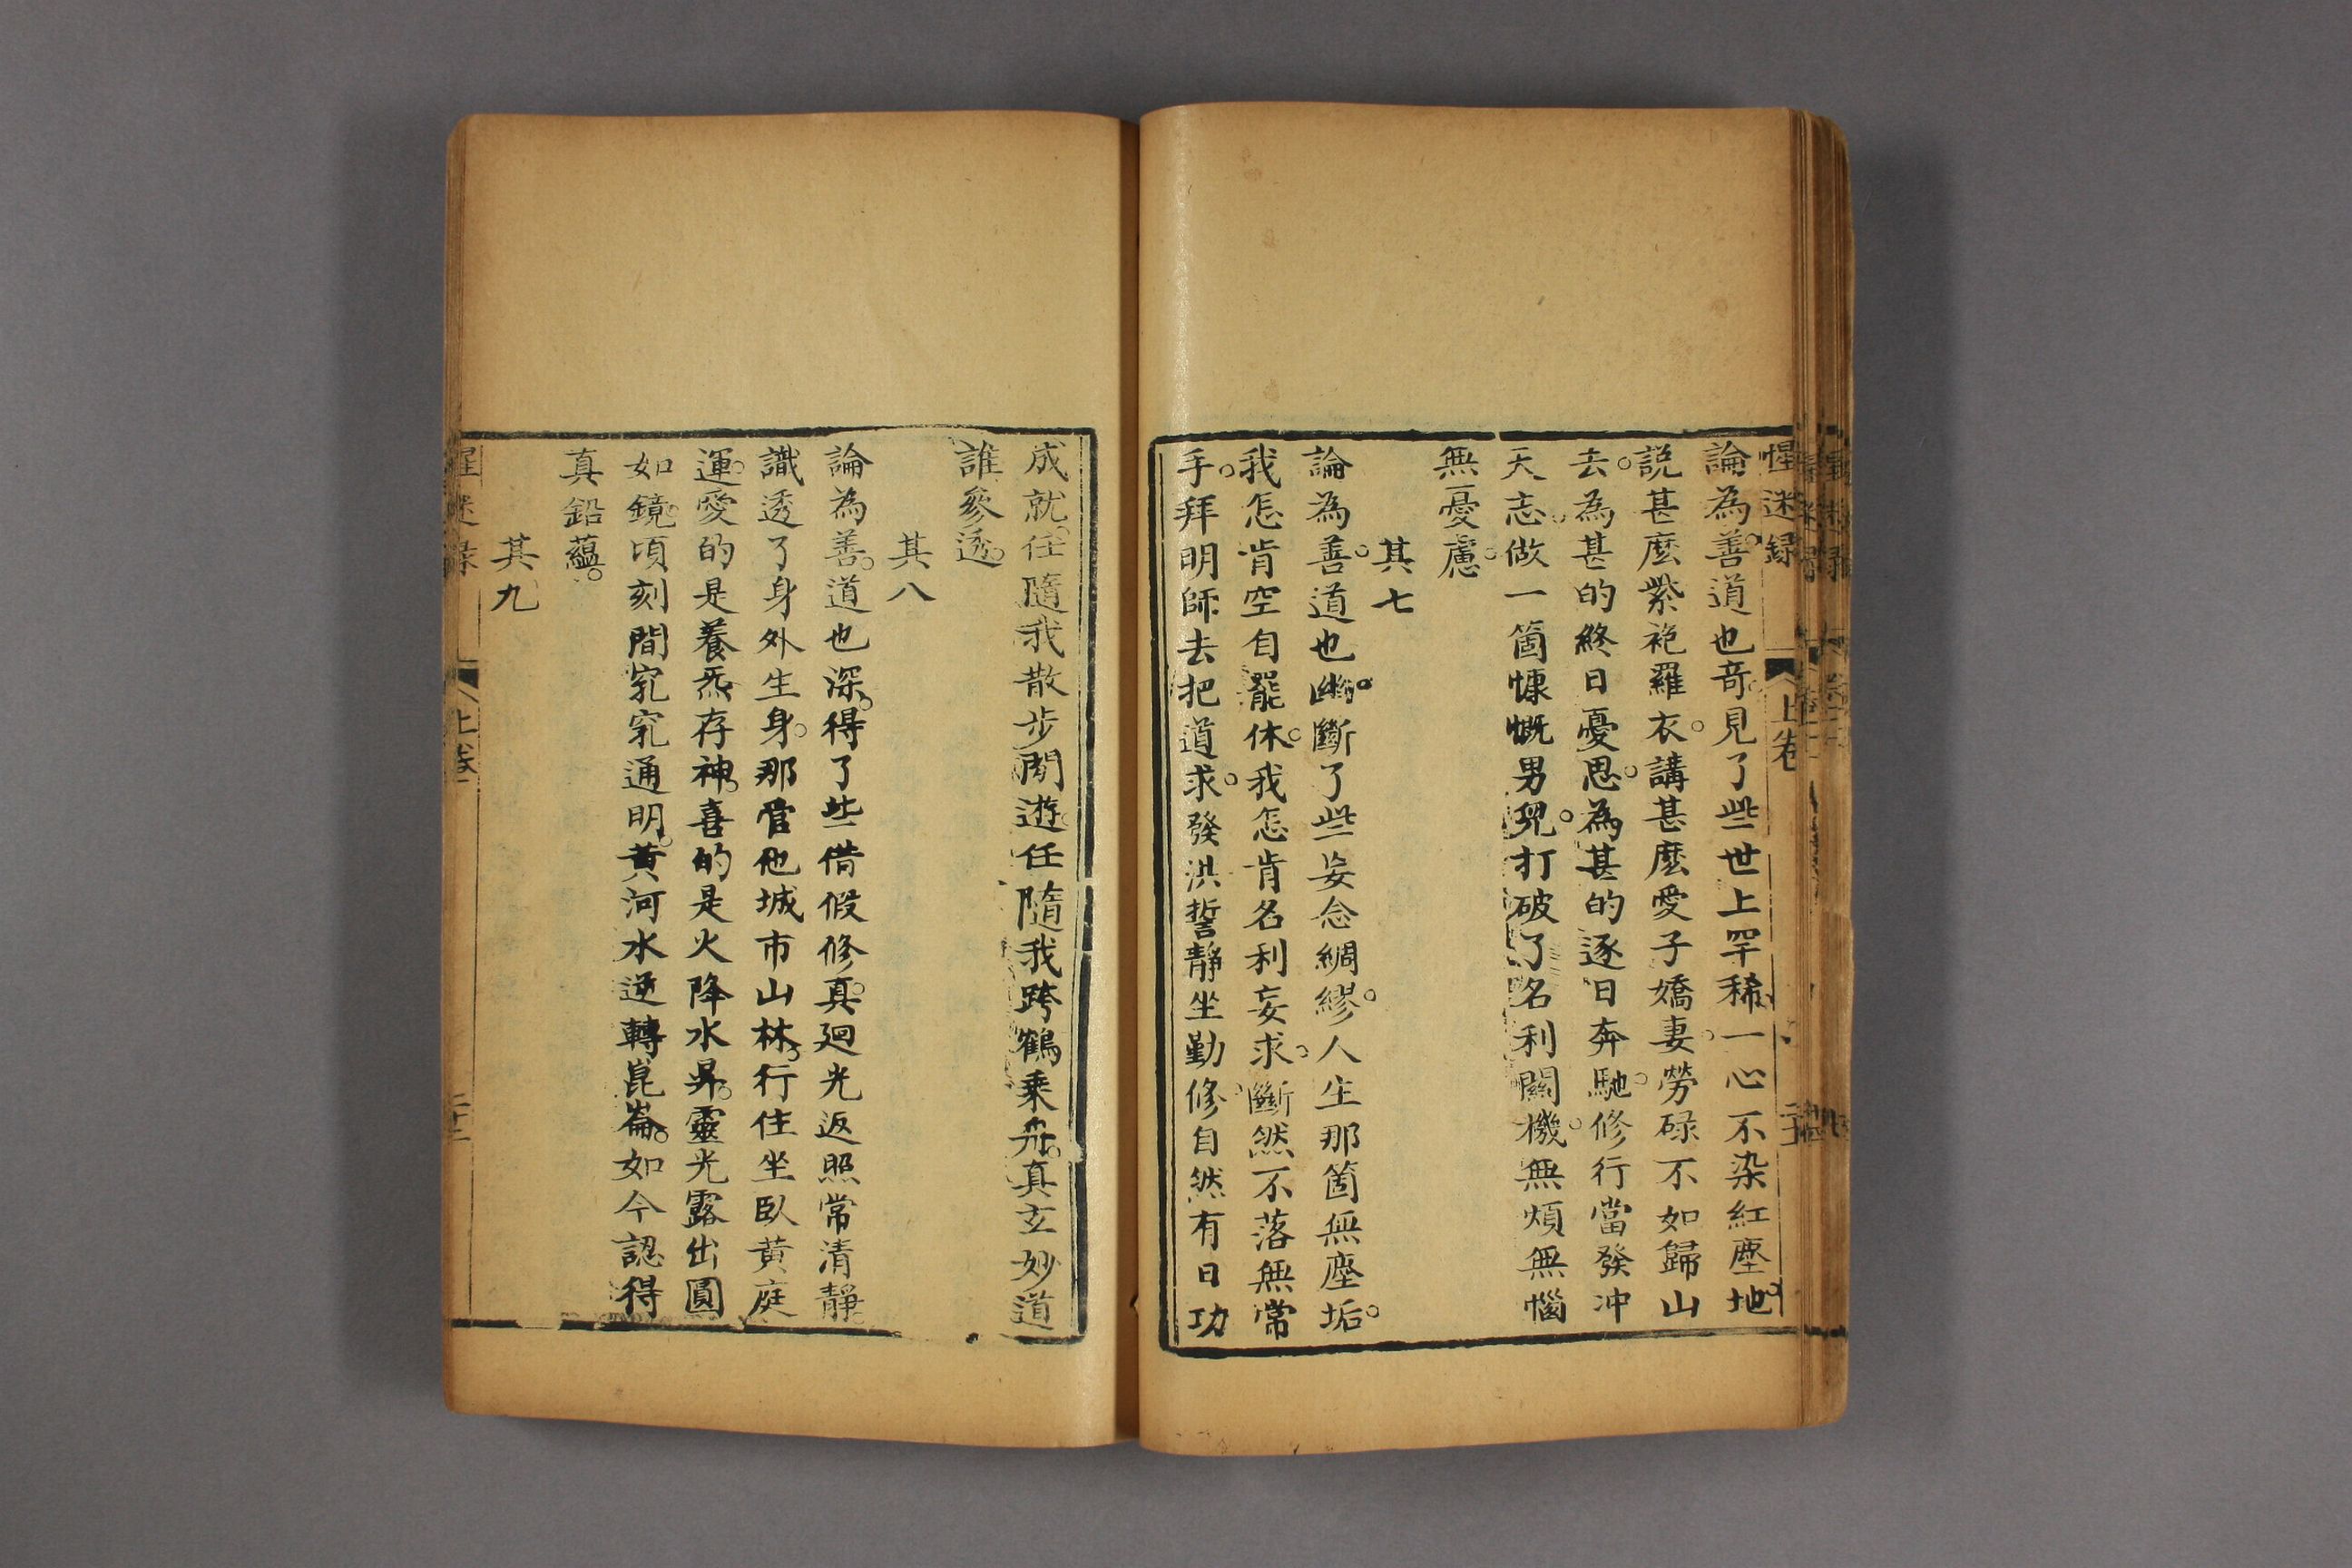 惺迷録 上卷
論為善。道也奇。見了些世上罕稀。一心不染紅塵地。
説甚麼紫袍羅衣。講甚麼愛子嬌妻。勞碌不如歸山
去。為甚的終日憂思。為甚的逐日奔馳。修行當發冲
天志。做一箇慷慨男兒。打破了名利關機。無煩無惱
無憂慮。
其七
論為善。道也幽。斷了些妄念綢繆。人生那箇無塵垢。
我怎肯空自罷休。我怎肯名利妄求。斷然不落無常
手。拜明師去把道求。發洪誓靜坐勤修。自然有日功
成就。任隨我散步閑遊。任隨我跨鶴乗舟。真玄妙道
誰參透。
其八
論為善。道也深。得了些借假修真。廻光返照常清靜。
識透了身外生身。那管他城市山林。行住坐臥黄庭
運。愛的是養炁存神。喜的是火降水昇。靈光露出圓
如鏡。頃刻間竅竅通明。黄河水逆轉崑崙。如今認得
真鉛蘊。
其九
惺迷录 上卷 二十二